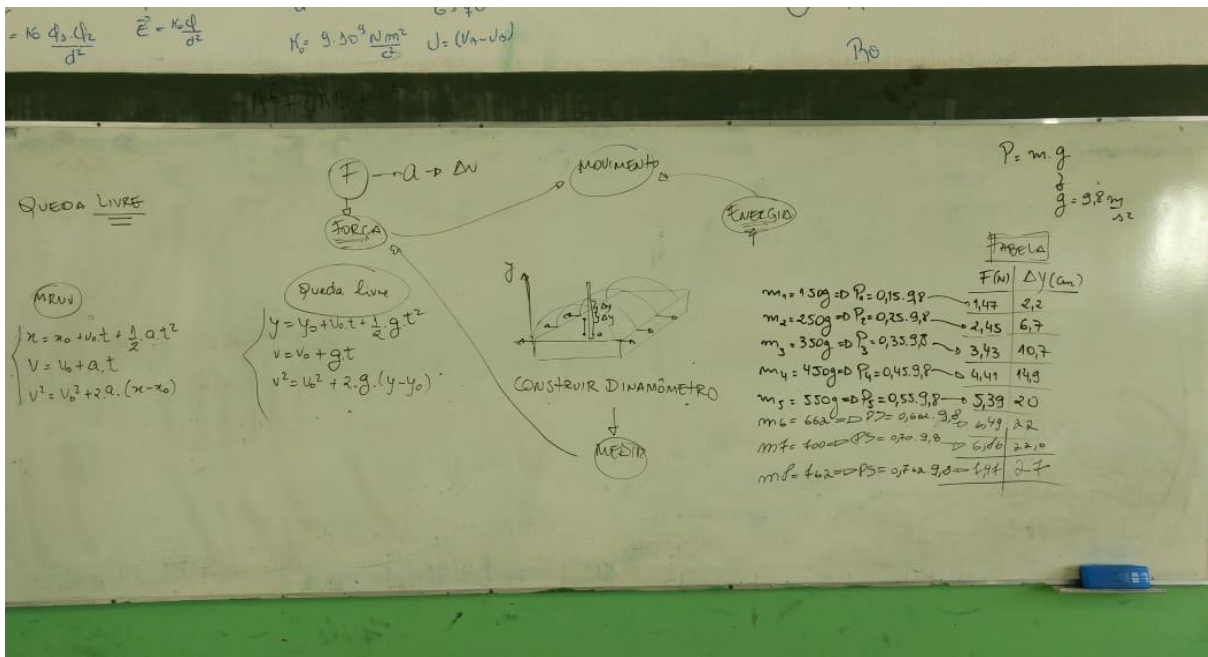 = K0 Q1.Q2/d²
E = K0Q/d²
K0 = 9.10⁹ Nm²/C²
U = (VA-VB)
QUEDA LIVRE
F → a → ΔV
FORÇA
MOVIMENTO
ENERGIA
P = m.g
g = 9,8 m/s²
MRUV
x = x0 + v0.t + 1/2.a.t²
V = V0 + a.t
V² = V0² + 2.a.(x-x0)
Queda livre
y = y0 + V0.t + 1/2.g.t²
V = V0 + g.t
V² = V0² + 2.g.(y-y0)
y
Δy
Δy
CONSTRUIR DINAMÔMETRO
MEDIR
TABELA
F(N) ΔY(cm)
m1 = 150g ⇒ P1 = 0,15.9,8 → 1,47 2,2
m2 = 250g ⇒ P2 = 0,25.9,8 → 2,45 6,7
m3 = 350g ⇒ P3 = 0,35.9,8 → 3,43 10,7
m4 = 450g ⇒ P4 = 0,45.9,8 → 4,41 14,9
m5 = 550g ⇒ P5 = 0,55.9,8 → 5,39 20
m6 = 662 ⇒ = 0,662.9,8 → 6,49 22
m7 = 700 ⇒ P5 = 0,70.9,8 → 6,86 22,0
m8 = 762 ⇒ P5 = 0,762.9,8 → 27